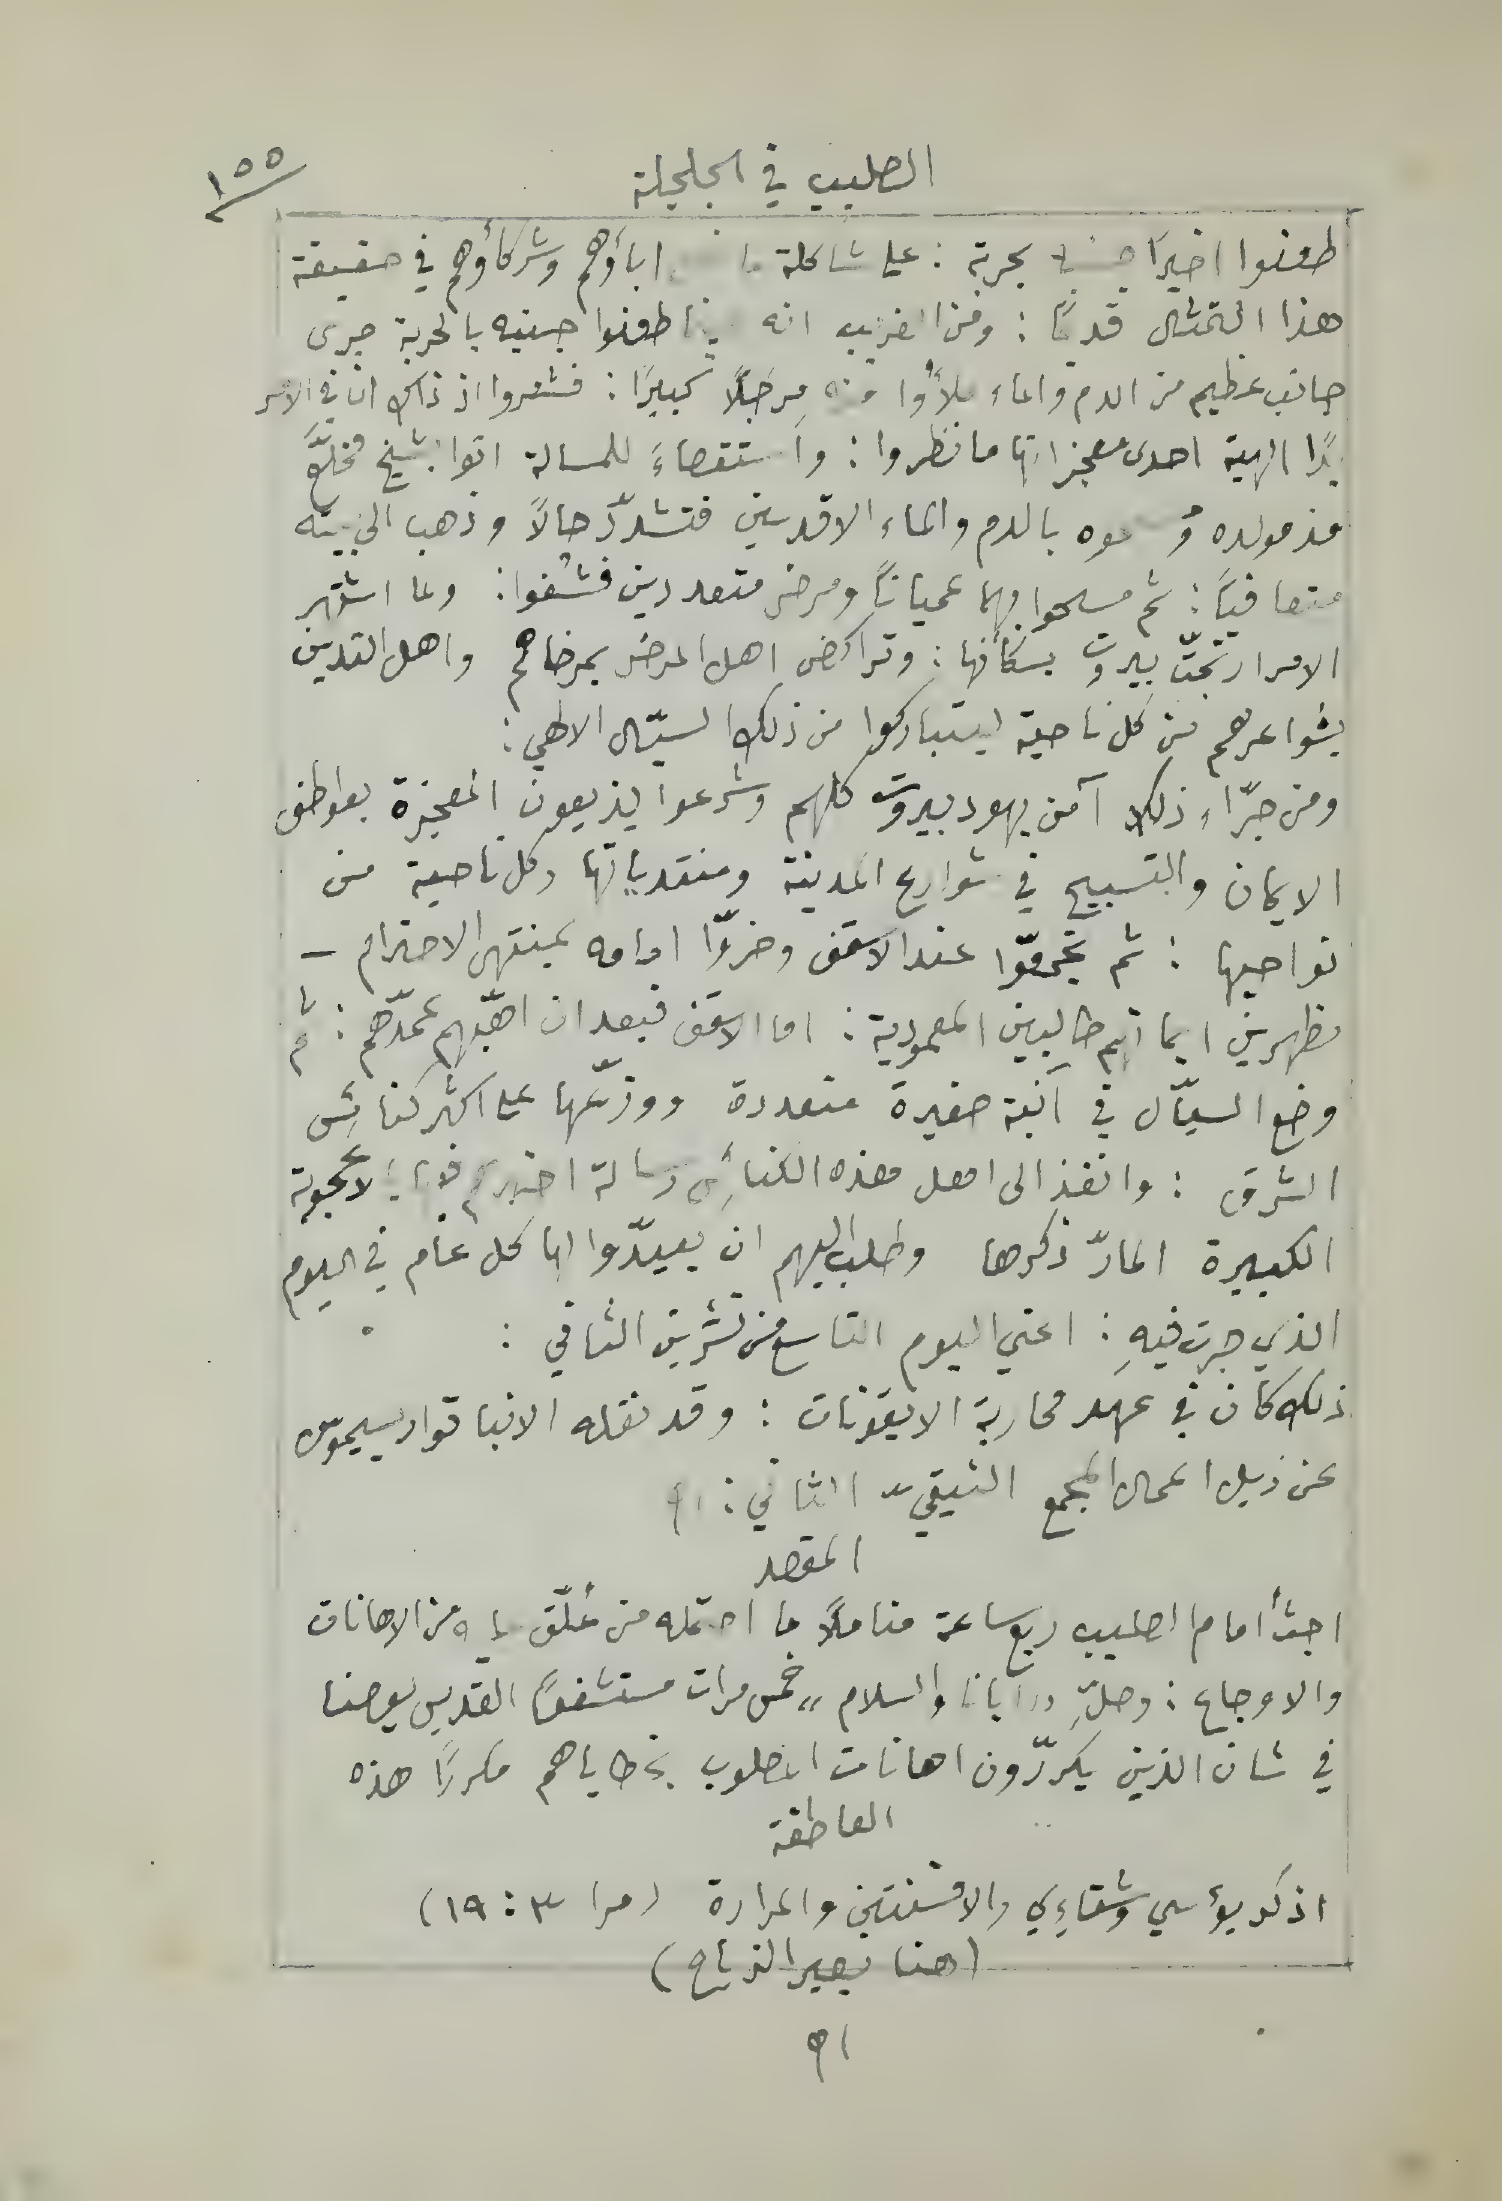 ١٥٥
الصليب في الجلجلة
طعنوا اخيرًا بحربة : على شاكلة ما اباؤهم وشركاؤهم في حقيقة
هذا التمثال قديمًا : ومن الغريب انه طعنوا جنبه بالحربة جرى
جانب عظيم من الدم والماء ملأوا منه مِرجَلًا كبيرًا : فشعروا اذ ذاك ان في الامر
يدًا الهية احدى معجزاتها ما نظروا : واستقصاءً للمسالة اتوا بشيخ مخلّع
منذ مولده بالدم والماء الاقدسين فتشدّد حالًا وذهب الى بيته
متعافيًا : ثم مسحوا بهما عميانًا ومرضى متعددين فشُفوا : ولما اشتهر
الامر ارتجّت بيروت بسكانها : وتراكض اهل المرضى بمرضاهم واهل التدين
بشواعرهم من كل ناحية ليتباركوا من ذلك السيّال الالهي :
ومن جرّاء ذلك آمن يهود بيروت كلهم وشرعوا يذيعون المعجزة بعواطف
الايمان والتسبيح في شوارع المدينة ومنتدياتها وكل ناحية من
نواحيها : ثم تجمعّوا عند الاسقف وخروّا امامه بمنتهى الاحترام –
مظهرين ايمانهم طالبين المعمودية : اما الاسقف فبعد ان اهّبهم عمدّهم : ثم
وضع السيّال في آنية صغيرة متعددة ووزّعها على اكثر كنائس
الشرق : وانفذ الى اهل هذه الكنائس رسالة اخبرهم فيها بالاعجوبة
الكبيرة المارّ ذكرها وطلب اليهم ان يعيدّوا لها كل عام في اليوم
الذي جرت فيهِ : اعني اليوم التاسع من تشرين الثاني :
ذلك كان في عهد محاربة الايقونات : وقد نقله الانبا تواديسيموس
عن ذيل اعمال المجمع النيقيّ الثاني : اه
المقصد
اجثُ امام الصليب ربع ساعة متاملًا ما احتمله من عُلّق عليه من الاهانات
والاوجاع : وصلِّ «ابانا والسلام» خمس مرات مستشفعًا القديس يوحنا
في شان الذين يكررّون اهانات المصلوب بخطاياهم مكررًا هذه
العاطفة
اذكر بؤسي وشقاءِي والافسنتين والمرارة (مرا ٣ : ١٩)
(هنا يصير الزياح)
اه